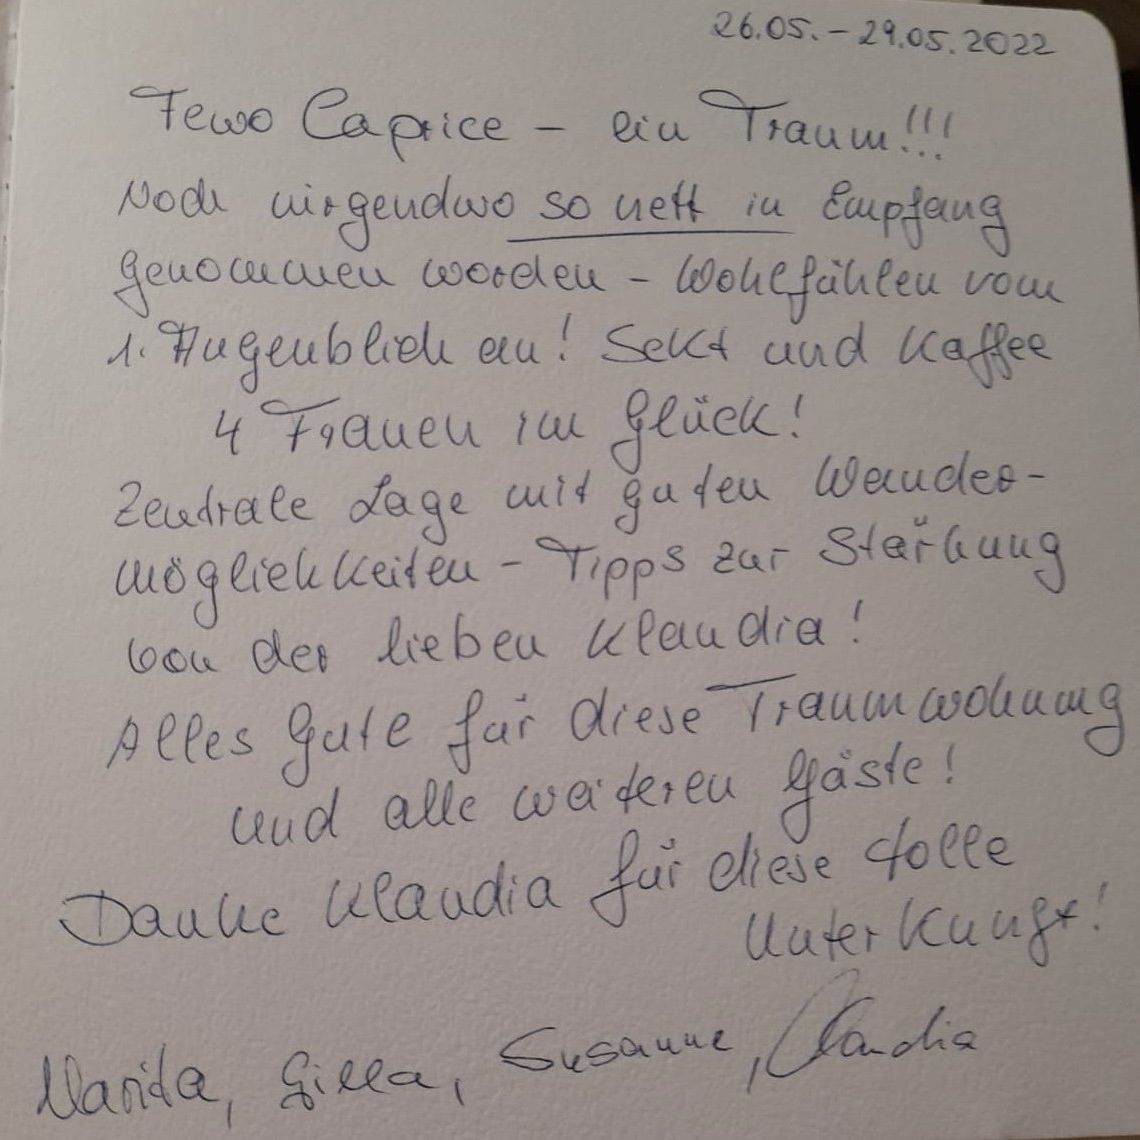 26.05. - 29.05.2022
Fewo Caprice - ein Traum!!!
Noch nirgendwo so nett in Empfang
genommen worden - Wohlfühlen vom
1. Augenblick an! Sekt und Kaffee
4 Frauen im Glück!
Zentrale Lage mit guten Wander-
möglichkeiten - Tipps zur Stärkung
von der lieben Klaudia!
Alles Gute für diese Traumwohnung
und alle weiteren Gäste!
Danke Klaudia für diese tolle
Unterkunft!
Marita, Gilla, Susanne, Claudia